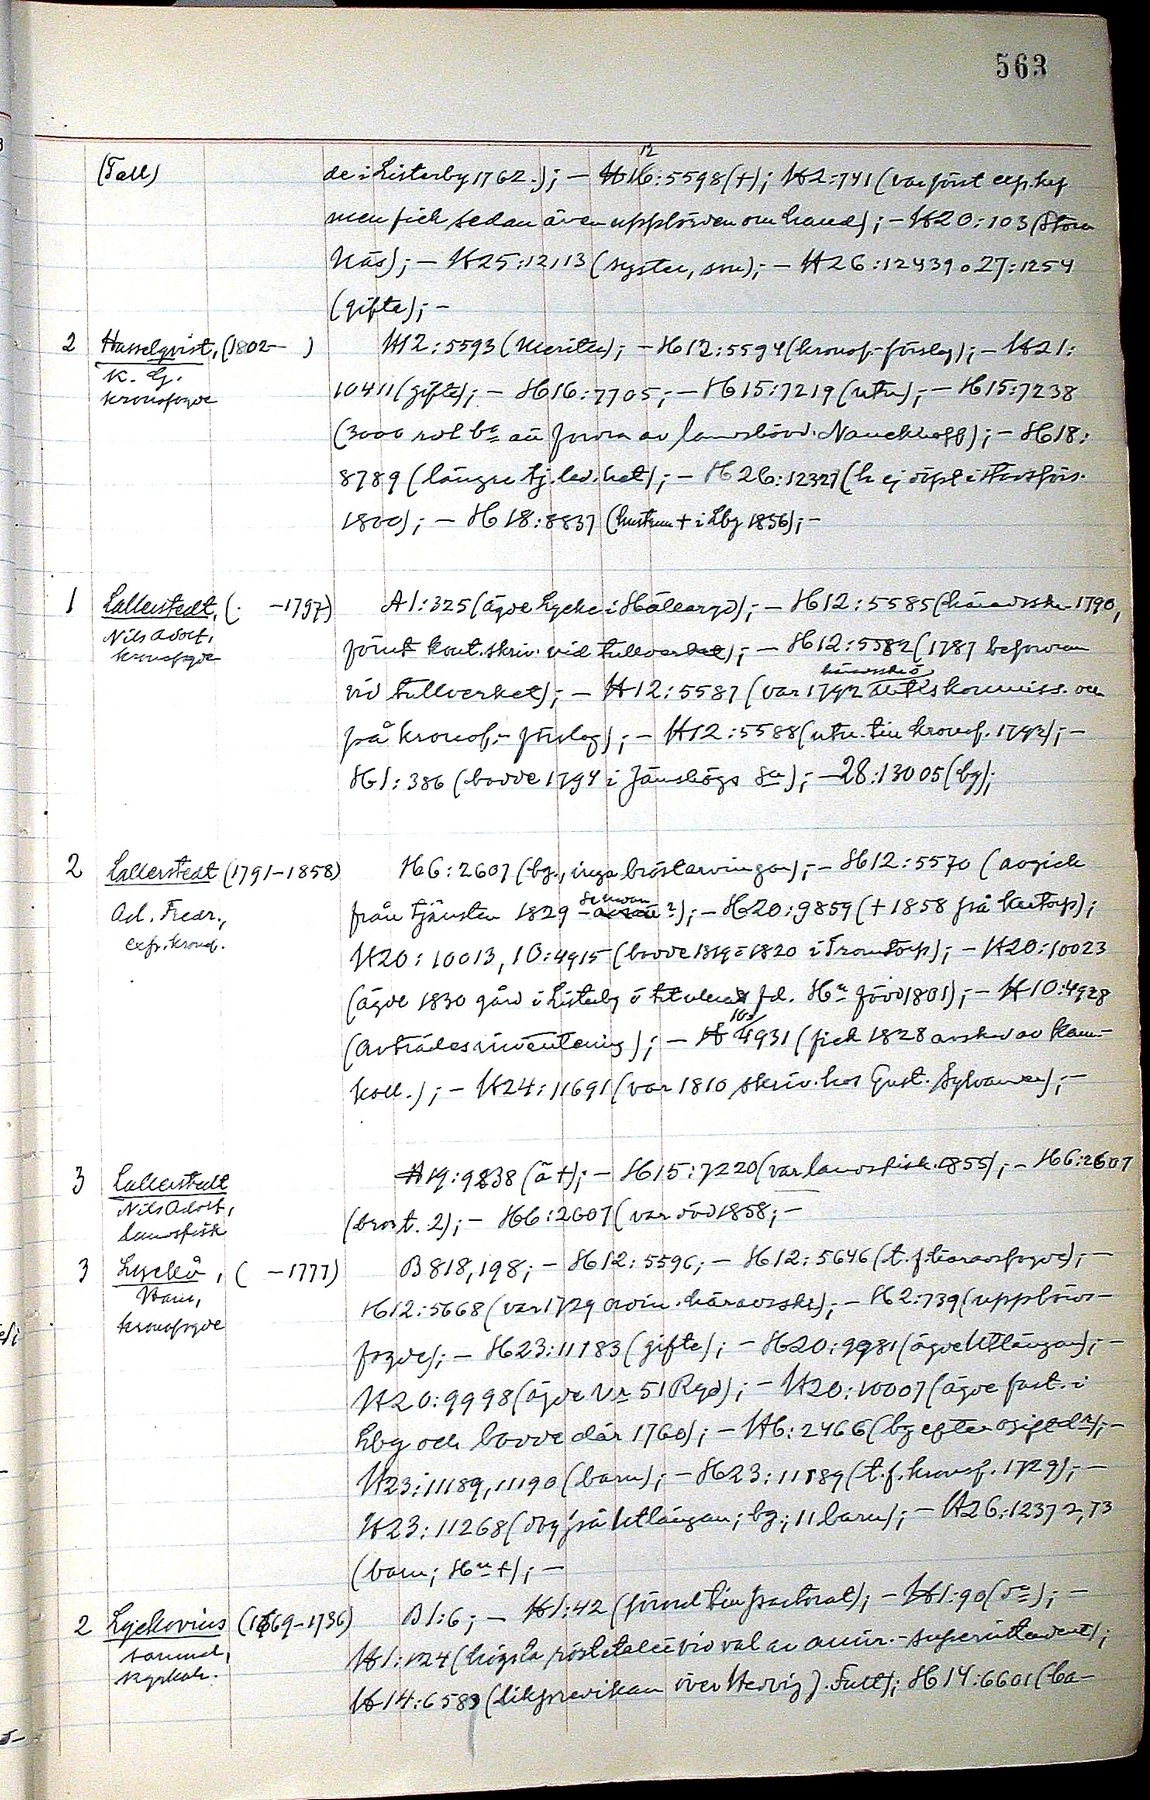 563
(Fall) de i Listerby 1762.); – H12:5598 (+); H2:741 (var först exp.bef
men fick sedan även uppbörden om hand); – H20:103 (Stora
Näs); – H25:12113 (syster, son); – H26:12439 o 27:1254
(gifte); –
2 Hasselqvist, (1802– ) H12:5593 (Meriter); – H12:5594 (kronof.-förslag); – H21:
K. G. 10411 (gifte); – H16:7705; – H15:7219 (utn); – H15:7238
kronofogde (3000 rdl av landshövd. Nauckhoff); – H18:
8789 (längre tj.led.het); – H26:12327 (h ej döpt i
1800); – H18:8837 (hustrun + i Lby 1856); –
1 Lallerstedt, ( –1797) A1:325 (ägde Lycke i Hällaryd); – H12:5585 (häradsskr 1790,
Nils Adolf, förut kont.skriv. vid tullverket); – H12:5582 (1787 befordran
kronofogde häradsskr o
vid tullverket); – H12:5587 (var 1792 auks.kommiss. och
på kronof.-förslag); – H12:5588 (utn. till kronof. 1792); –
H1:386 (bodde 1794 i Jämshögs sn); – 28:13005 (bg);
2 Lallerstedt (1791–1858) H6:2607 (bg., inga bröstarvingar); – H12:5570 (avgick
Ad. Fredr., från tjänsten 1829 –); – H20:9859 (+ 1858 på);
exp. kronof. H20:10013, 10:4915 (bodde 1819 o 1820 i Tromtorp); – H20:10023
(ägde 1830 gård i Listerby o titulerad fd. Hn född 1801); – H10:4928
(Avträdesinventering); – H 10:4931 (fick 1828 avsked av Kam.-
koll.); – H24:11691 (var 1810 skriv. hos Gust. Sylvander); –
3 Lallerstedt H19:9238 (ä +); – H15:7220 (var landsfisk. 1855); – H6:2607
Nils Adolf, (bror t. 2); – H6:2607 (var död 1858; –
landsfisk
3 Lyckå, ( –1777) B 818, 198; – H12:5596; – H12:5646 (t.f. häradsfogde); –
Hans, H12:5668 (var 1729 ordin. häradsskr); – H2:739 (uppbörds-
kronofogde fogde); – H23:11183 (gifte); – H20:9981 (ägde Utlängan); –
H20:9998 (ägde Nr 51 Rgd); – H20:10007 (ägde fast. i
Lby och bodde där 1760); – H6:2466 (bg efter ogift dr); –
H23:11189, 11190 (barn); – H23:11189 (t.f. kronof. 1729); –
H23:11268 (dog på Utlängan; bg; 11 barn); – H26:12372, 73
(barn; Hn +); –
2 Lyckovius (1669–1736) B1:6; – H1:42 (förord till pastorat); – H1:90 (do); –
Samuel, H1:124 (högsta rösttalet vid val av amir.-superintendent);
kyrkoh. H14:6589 (likpredikan över Hedvig J. Fall); H14:6601 (ba-